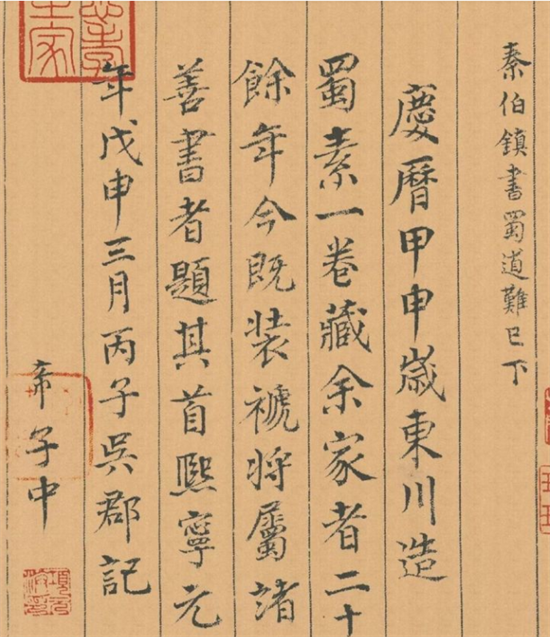 秦伯鎮書蜀道難已下
慶曆甲申歲東川造
蜀素一卷藏余家者二十
餘年今既装褫将屬諸
善書者題其首熙寧元
年戊申三月丙子吳郡記
希子中